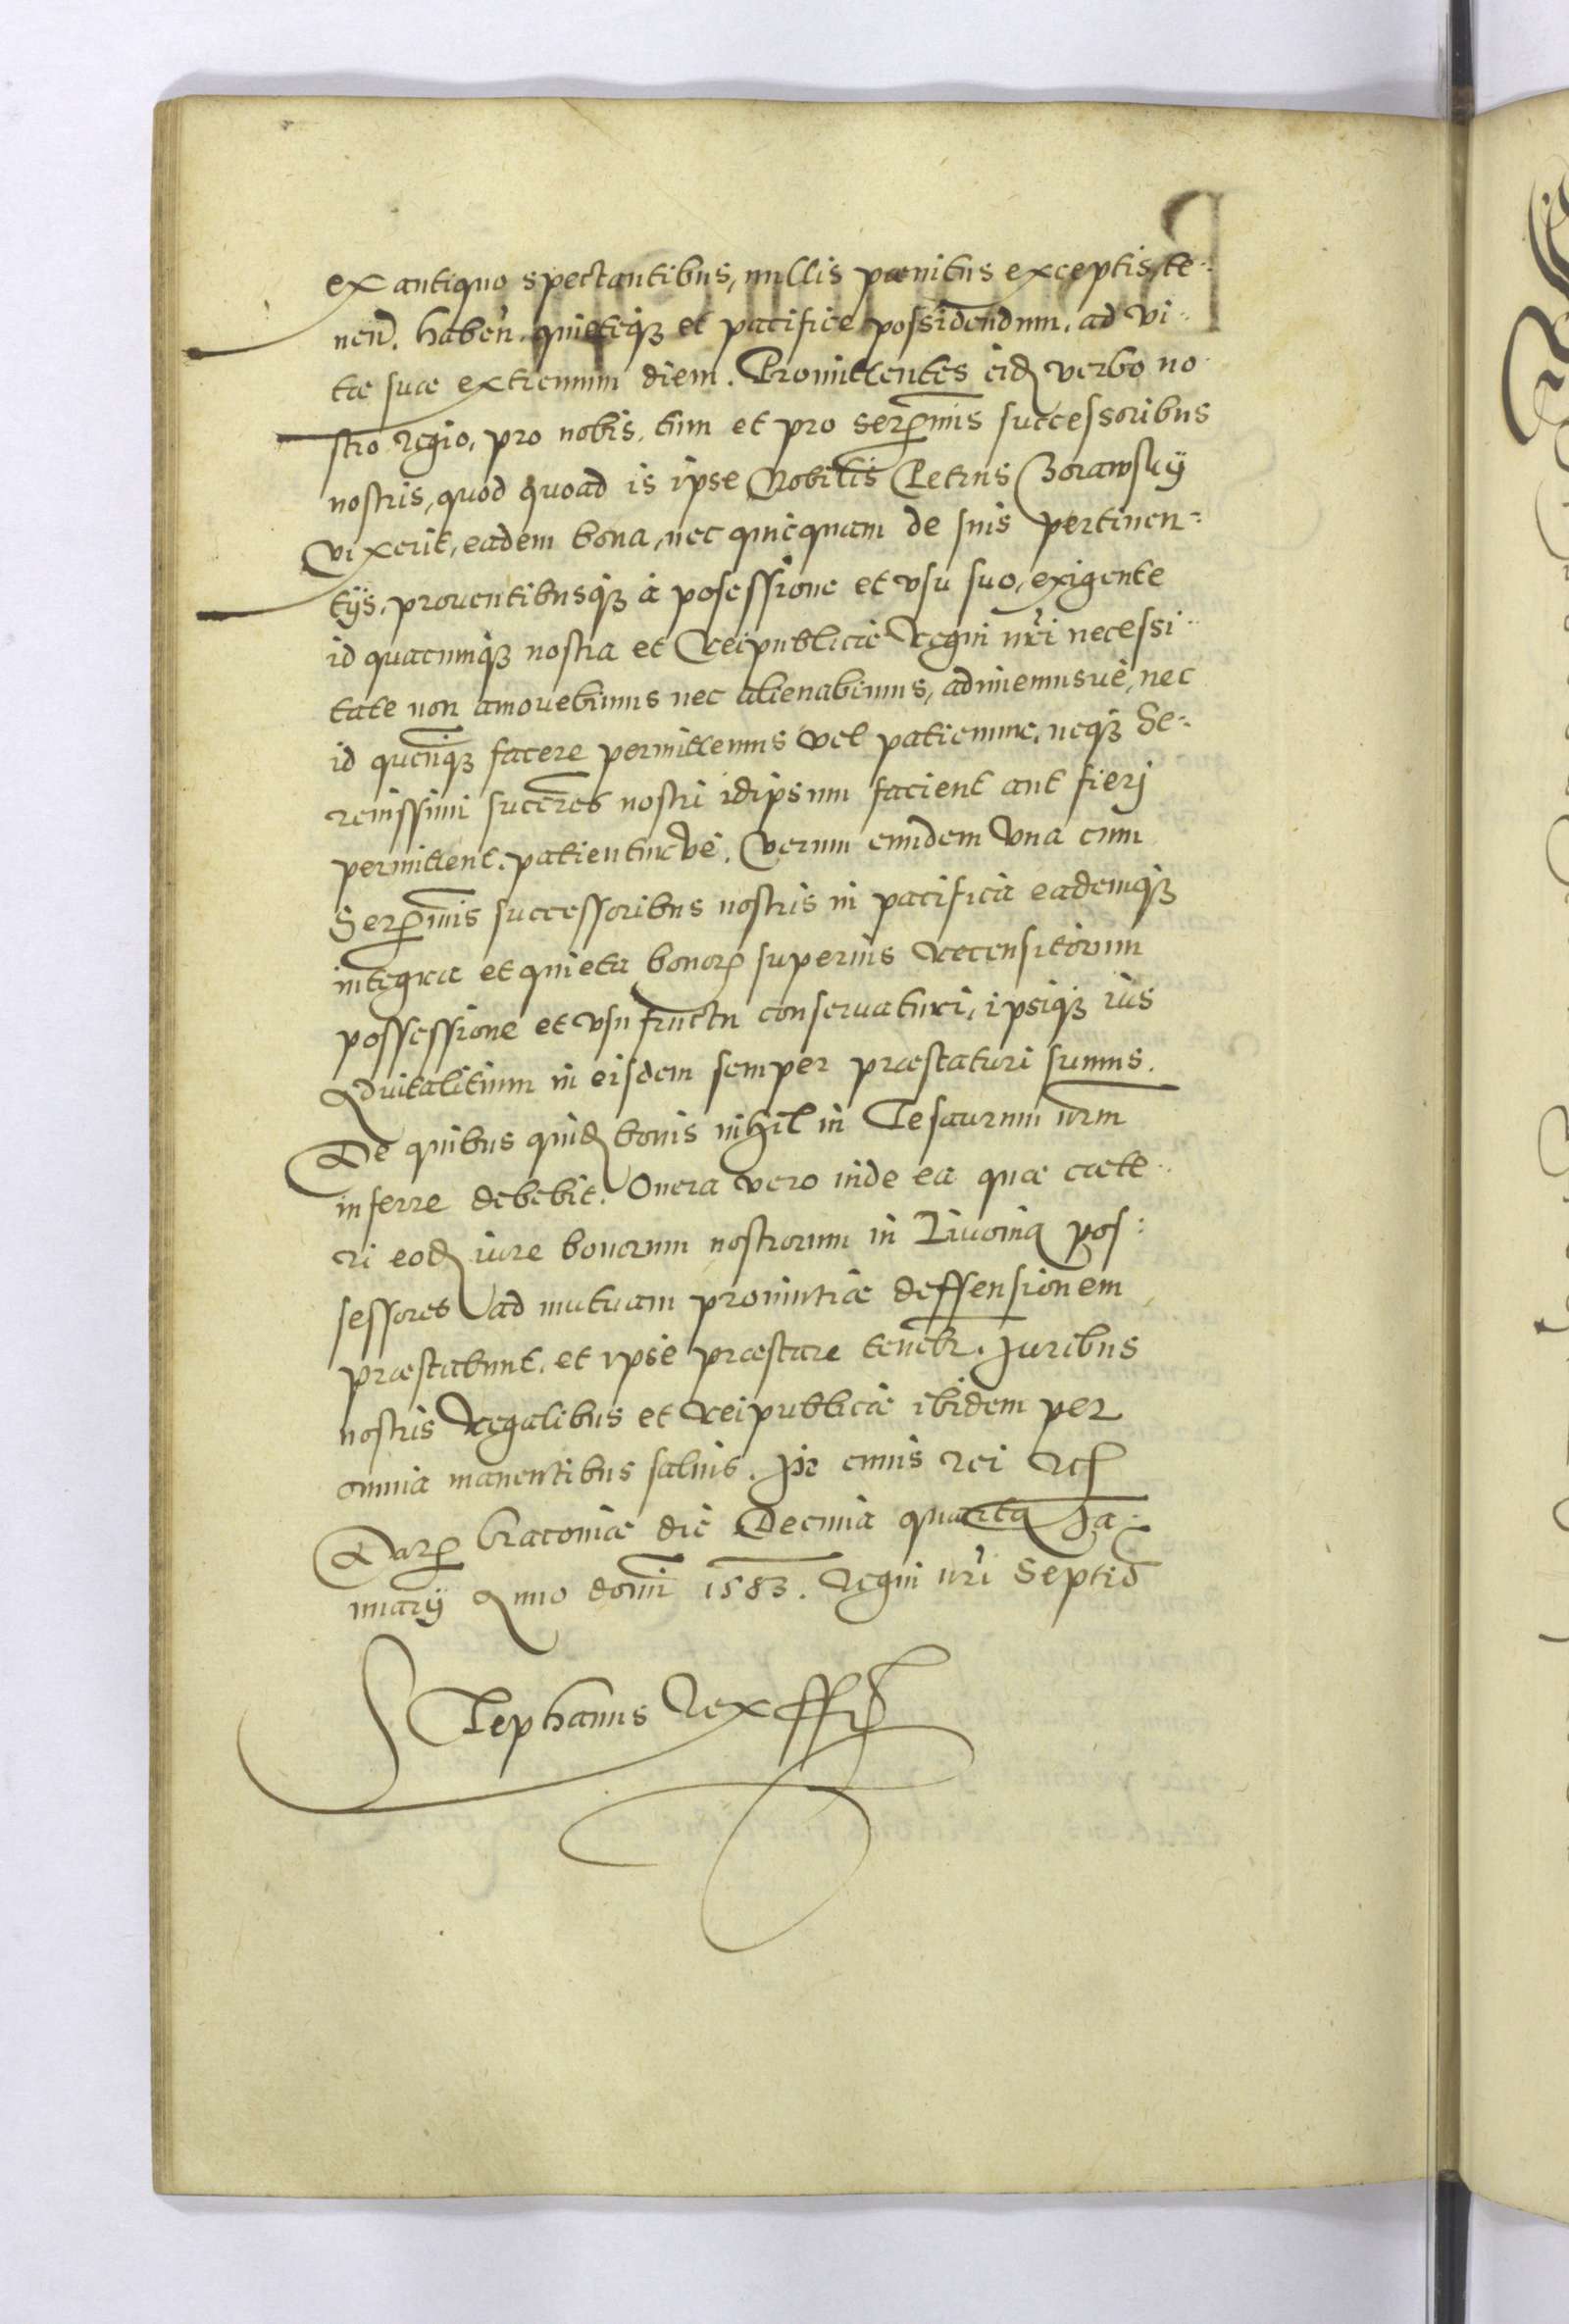 ex antiquo spectantibus, nullis pœnitus exceptis, te-
nen̄d. haben̄. quieteqꜣ et pacifice possidendum. ad vi-
tæ suæ extremum diem. Promittentes eid verbo no-
stro regio, pro nobis, tum et pro Ser̄mis successoribus
nostris, quod quoad is ipse Nobilis Petrus Borawskÿ
vixerit, eadem bona, nec quicquam de suis pertinen-
tÿs, prouentibusqꜣ à posessione et vsu suo, exigente
id quacumqꜣ nostra et Reipublicæ Regni nr̄i necessi-
tate non amouebimus nec alienabimus, adimemusue, nec
id quenqꜣ facere permittemus vel patiemur, neqꜣ Se-
renissimi succ̄res nostri idipsum facient aut fierj
permittent. patienturve. Verum eundem vna cum
Ser̄mis successoribus nostris in pacifica eademqꜣ
integra et quieta bonor̄ superius recensitorum
possessione et vsufructu conseruaturi, ipsiqꜣ ius
Aduitalitium in eisdem semper præstaturi sumus.
De quibus quid bonis nihil in Tesaurum nr̄m
inferre debebit. Onera vero inde ea quæ cæte-
ri eod iure bonorum nostrorum in Liuonia pos-
sessores ad mutuam prouintiæ deffensionem
præstabunt, et ipse præstare teneb̄r. Juribus
nostris Regalibus et Reipublicæ ibidem per
omnia manentibus saluis. In cuius rei
Dat̄ Cracoviæ die Decima quarta Ja-
nuarÿ Anno domī 1583. Regni nr̄i Septiō
Stephanus Rex ss̄t